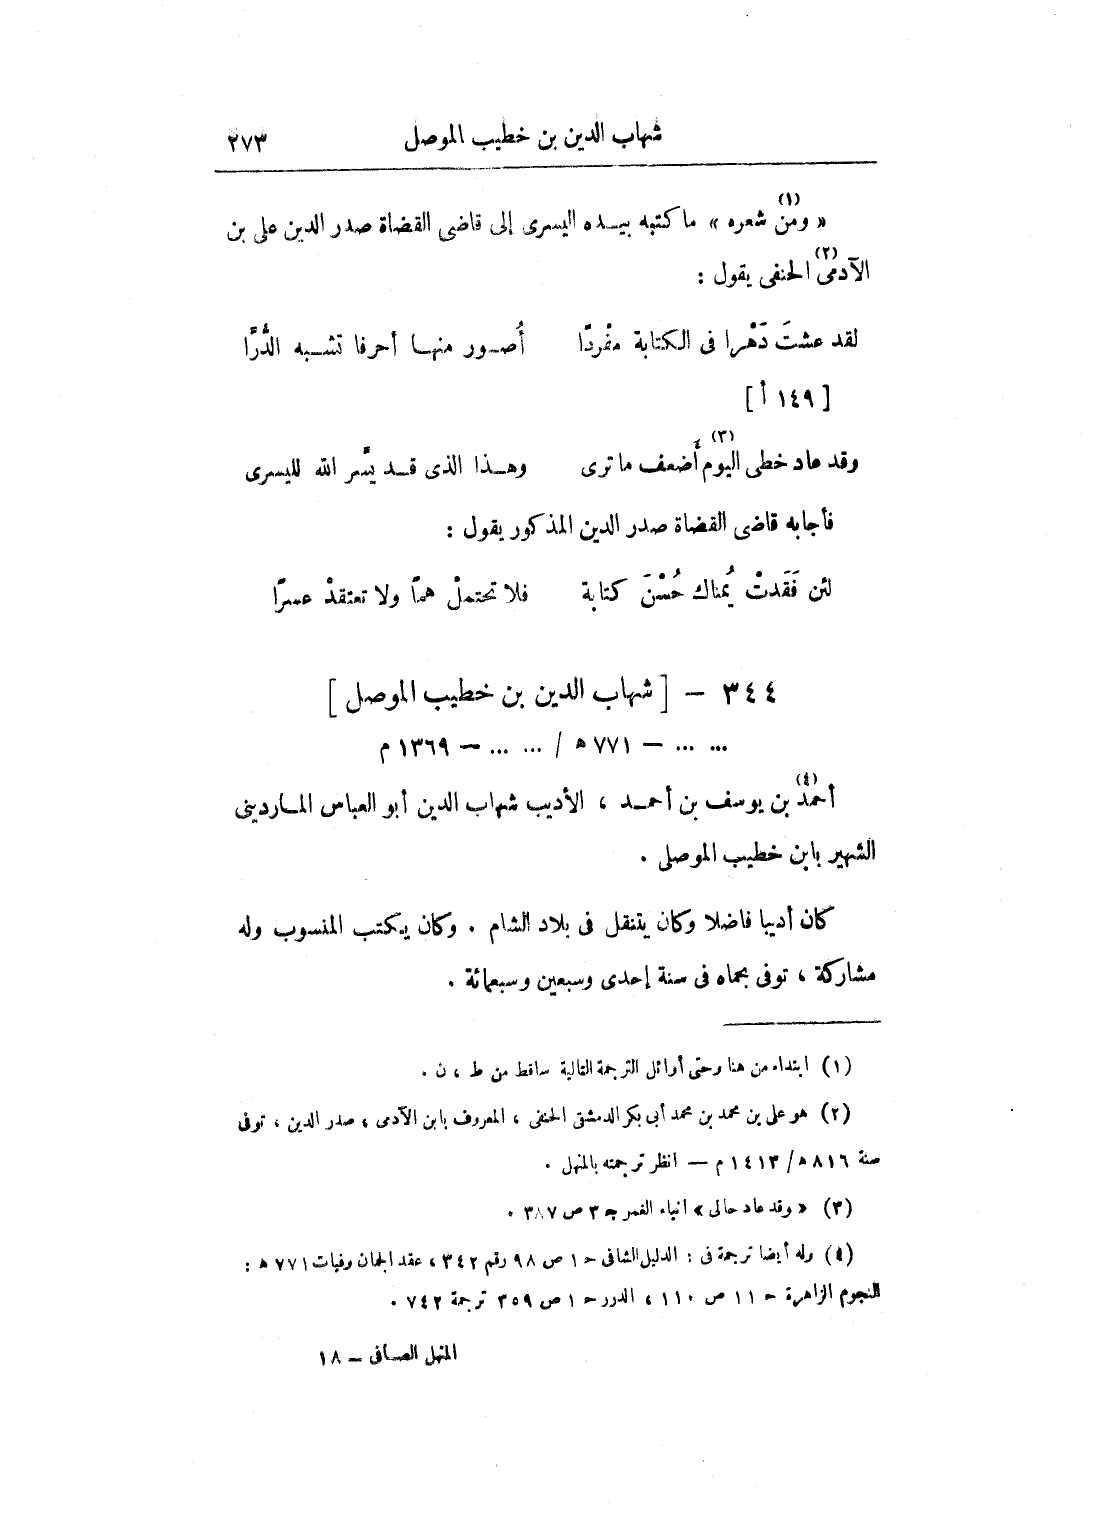 شهاب الدين بن خطيب الموصل ٢٧٣
« ومن (١) شعره » ما كتبه بيـده اليسرى إلى قاضى القضاة صدر الدين على بن
الآدمى (٢) الحنفى يقول :
لقد عشتَ دَهْرا فى الكتابة مفْردًا أُصـور منهـا أحرفا تشـبه الدُّرَّا
[ ١٤٩ أ ]
وقد عاد خطى اليوم (٣) أَضعف ما ترى وهـذا الذى قـد يسَّر الله لليسرى
فأجابه قاضى القضاة صدر الدين المذكور يقول :
لئن فَقَدتْ يُمناك حُسْنَ كتابة فلا تحتملْ همًّا ولا تعتقدْ عسرًا
٣٤٤ – [ شهاب الدين بن خطيب الموصل ]
... ... – ٧٧١ ه / ... ... – ١٣٦٩ م
أحمد (٤) بن يوسف بن أحمـد ، الأديب شهاب الدين أبو العباس المـاردينى
الشهير بابن خطيب الموصلى .
كان أديبا فاضلا وكان يتنقل فى بلاد الشام . وكان يكتب المنسوب وله
مشاركة ، توفى بحماه فى سنة إحدى وسبعين وسبعمائة .
(١) ابتداء من هنا وحتى أوائل الترجمة التالية ساقط من ط ، ن .
(٢) هو على بن محمد بن محمد أبى بكر الدمشقى الحنفى ، المعروف بابن الآدمى ، صدر الدين ، توفى
سنة ٨١٦ ه / ١٤١٣ م — انظر ترجمته بالمنهل .
(٣) « وقد عاد حالى » أنباء الغمر ج ٣ ص ٣٨٧ .
(٤) وله أيضا ترجمة فى : الدليل الشافى ح ١ ص ٩٨ رقم ٣٤٢ ، عقد الجمان وفيات ٧٧١ ه :
النجوم الزاهرة ح ١١ ص ١١٠ ، الدرر ح ١ ص ٣٥٩ ترجمة ٧٤٢ .
المنهل الصافى – ١٨